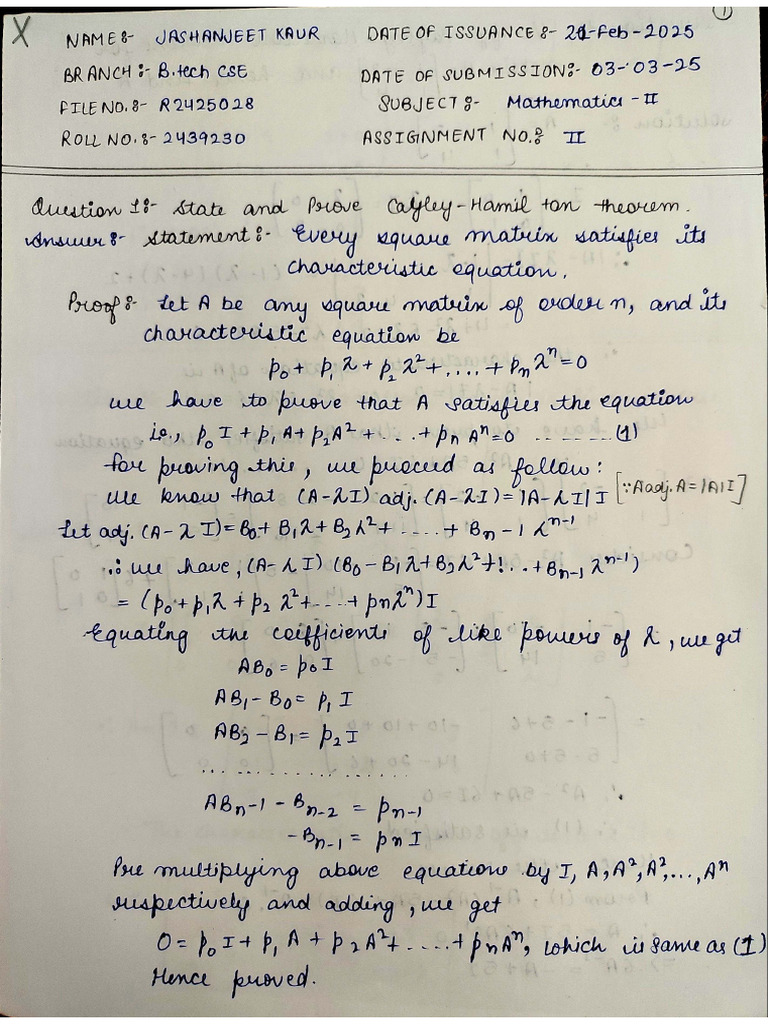 ①
X NAME:- JASHANJEET KAUR DATE OF ISSUANCE:- 21-Feb-2025
BRANCH:- B.tech CSE DATE OF SUBMISSION:- 03-03-25
FILE NO.:- R2425028 SUBJECT:- Mathematics-II
ROLL NO.:- 2439230 ASSIGNMENT NO.: II
Question 1:- State and Prove Cayley-Hamil ton theorem.
Answer:- Statement:- Every square matrix satisfies its
characteristic equation.
Proof:- Let A be any square matrix of order n, and its
characteristic equation be
p₀ + p₁λ + p₂λ² + .... + pₙλⁿ = 0
we have to prove that A satisfies the equation
i.e., p₀I + p₁A + p₂A² + .... + pₙAⁿ = 0 ......... (1)
for proving this, we proceed as follow:
We know that (A-λI) adj. (A-λI) = |A-λI| I [∵ A adj. A = |A| I]
Let adj. (A-λI) = B₀ + B₁λ + B₂λ² + .... + Bₙ-1 λⁿ⁻¹
∴ we have, (A-λI) (B₀ - B₁λ + B₂λ² + !.. + Bₙ₋₁ λⁿ⁻¹)
= (p₀ + p₁λ + p₂ λ² + .... + pₙλⁿ) I
Equating the coefficients of like powers of λ, we get
AB₀ = p₀ I
AB₁ - B₀ = p₁ I
AB₂ - B₁ = p₂ I
....................
ABₙ-1 - Bₙ₋₂ = pₙ₋₁
-Bₙ₋₁ = pₙ I
Pre multiplying above equation by I, A, A², A²,..., Aⁿ
respectively and adding, we get
0 = p₀ I + p₁ A + p₂A² + ..... + pₙAⁿ, which is same as (1)
Hence proved.